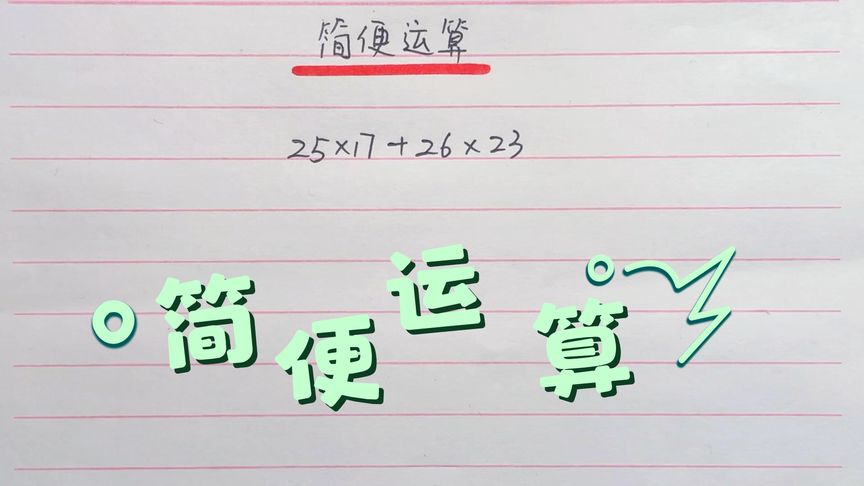 简便运算
25×17+26×23
简便运算